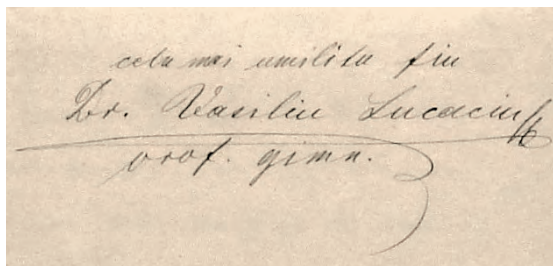 celu mai umilitu fiu
Dr. Vasiliu Lucaciu
prof. gimn.